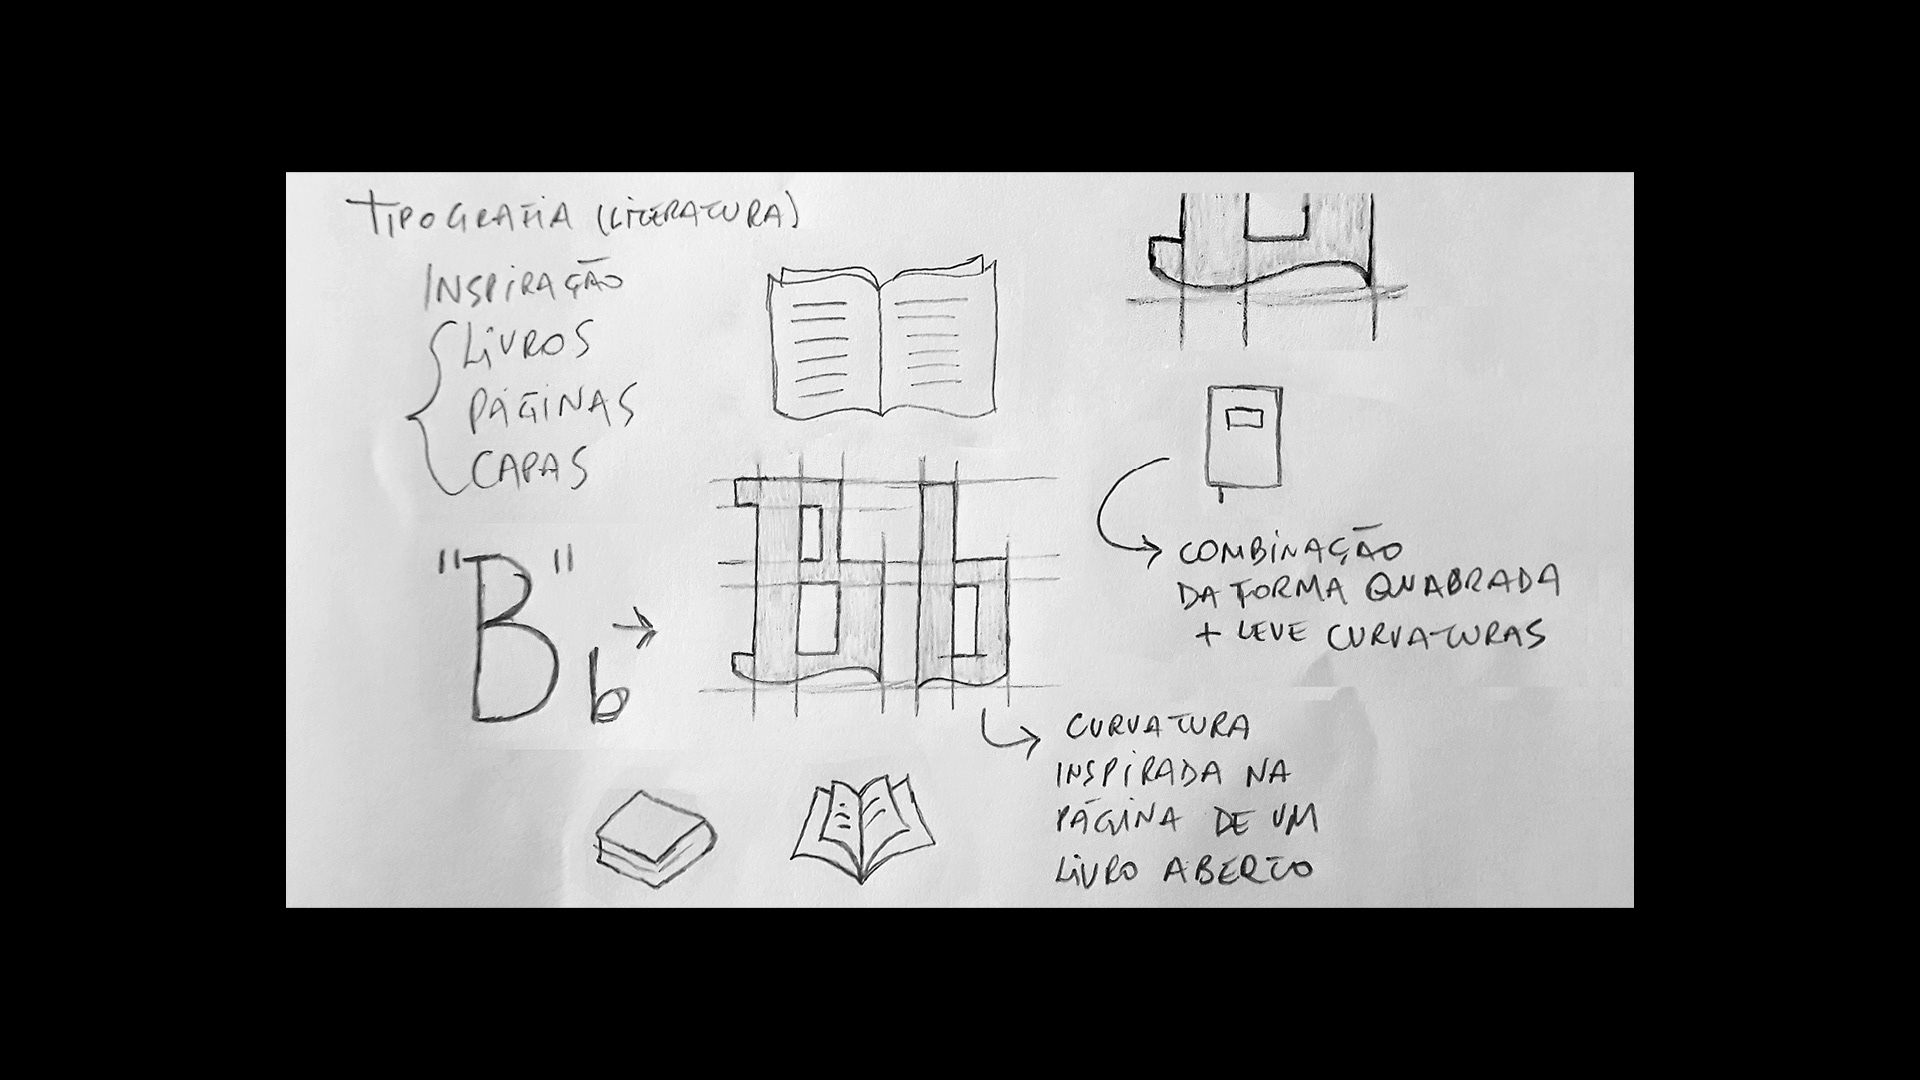 TIPOGRAFIA (LITERATURA)
INSPIRAÇÃO
LIVROS
PÁGINAS
CAPAS
"B"
b
Bb
COMBINAÇÃO
DA FORMA QUADRADA
+ LEVE CURVATURAS
CURVATURA
INSPIRADA NA
PÁGINA DE UM
LIVRO ABERTO